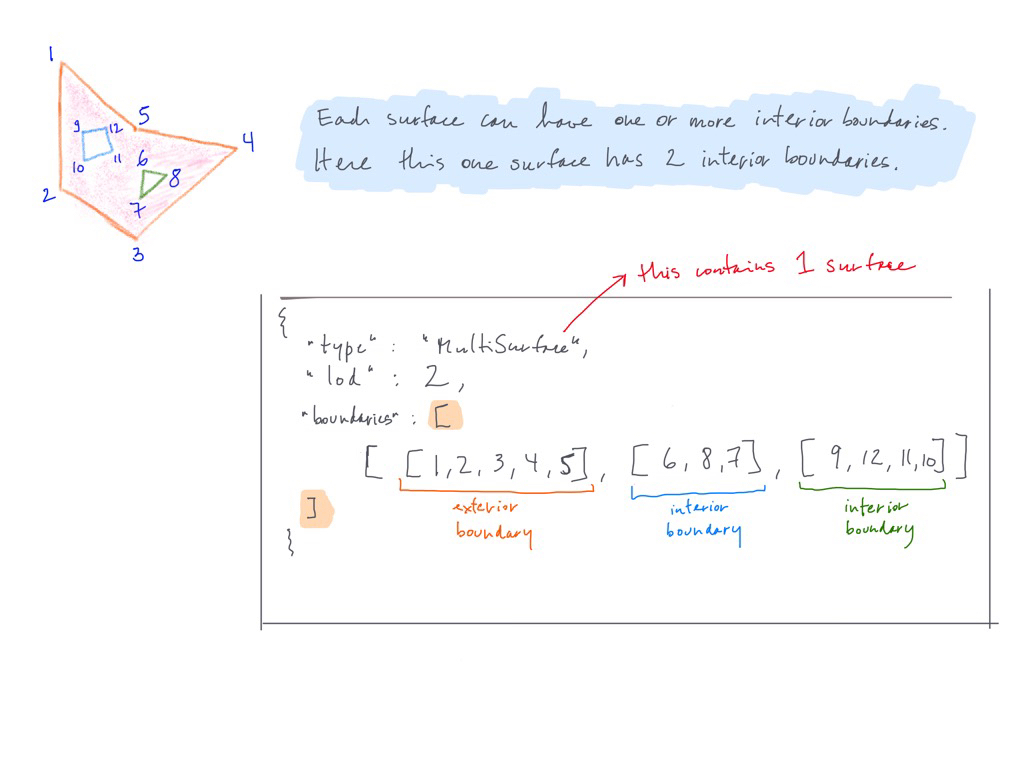 1
5
4
9
12
10
11
6
8
2
7
3
Each surface can have one or more interior boundaries.
Here this one surface has 2 interior boundaries.
this contains 1 surface
{
"type" : "MultiSurface",
"lod" : 2,
"boundaries" : [
[ [1, 2, 3, 4, 5] , [ 6, 8, 7] , [ 9, 12, 11, 10] ]
exterior
boundary
interior
boundary
interior
boundary
]
}